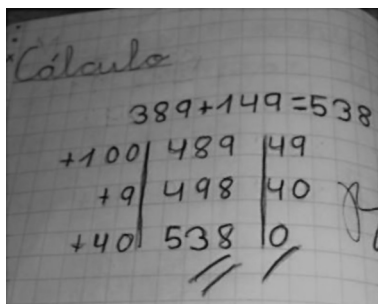 Cálculo
389+149=538
+100| 489 |49
+9| 498 |40
+40| 538 |0